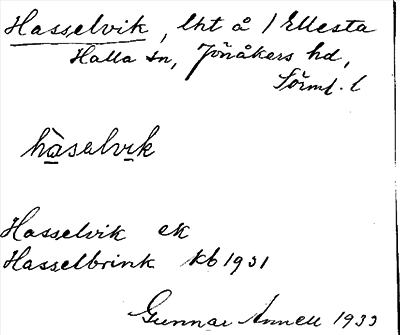 Hasselvik, lht å 1 Ellesta
Halla sn, Jönåkers hd,
Sörml. l
hàsalvik
Hasselvik ek
Hasselbrink kb 1931
Gunnar Annell 1933